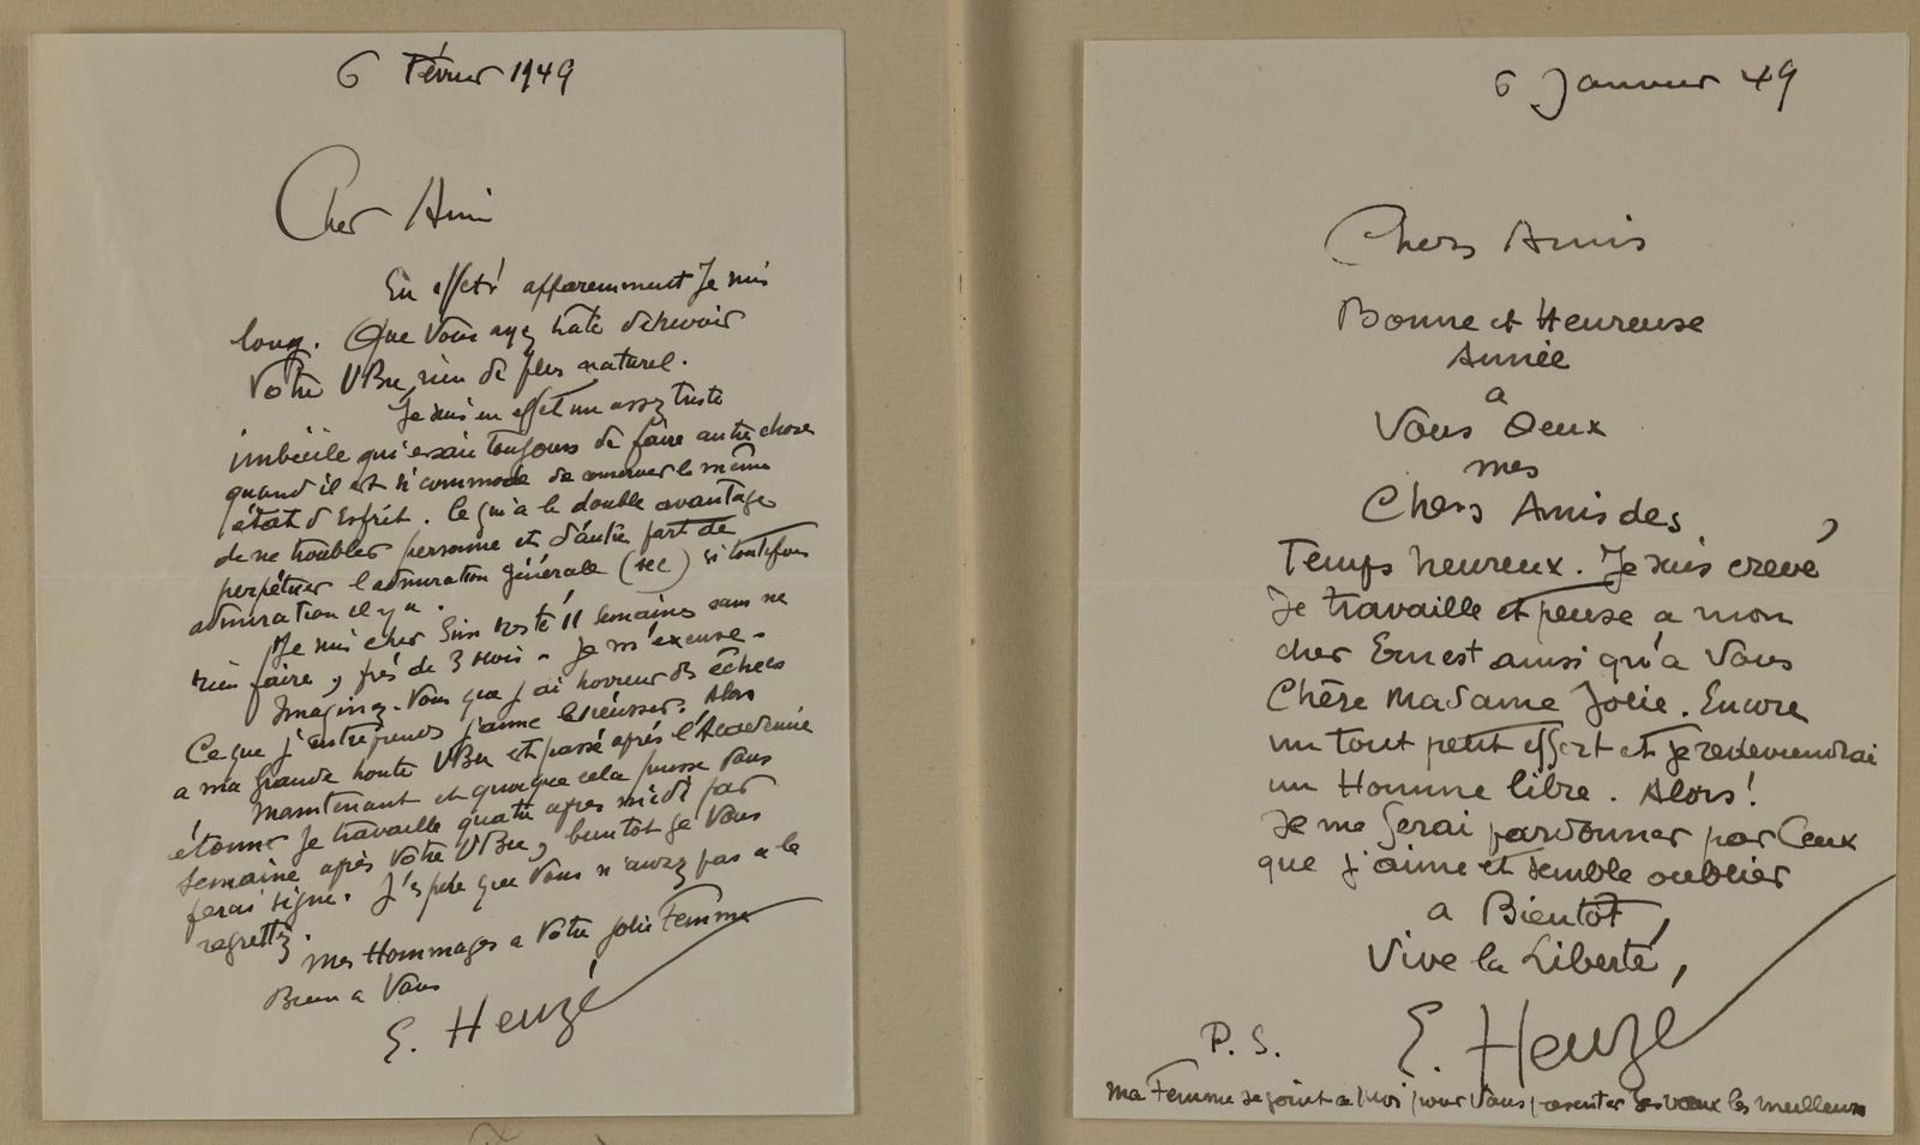 6 Février 1949
Cher Ami
En effet! apparemment Je suis
long. Que Vous ayez hâte de revoir
Votre UBu, rien de plus naturel.
Je suis en effet un assez triste
imbécile qui essaie toujours de faire autre chose
quand il est si commode de conserver le même
état d'Esprit. Ce qui a le double avantage
de ne troubler personne et d'autre part de
perpétuer l'admiration générale (sic) si toutefois
admiration il y a.
Je suis cher resté 11 semaines sans ne
rien faire, près de 3 Mois - Je m'excuse -
Imaginez-Vous que j'ai horreur des échecs
Ce que j'entreprends j'aime le réussir. Alors
a ma grande honte UBu est passé après l'Academie
Maintenant et quoique cela puisse Vous
étonner Je travaille quatre après midi par
Semaine après Votre UBu, bientôt je Vous
ferai signe. J'espère que Vous n'aurez pas a le
regretter.
mes Hommages a Votre jolie Femme
Bien a Vous
E. Heuzé
6 Janvier 49
Chers Amis
Bonne et Heureuse
Année
a
Vous Deux
mes
Chers Amis des
Temps heureux. Je suis crevé,
Je travaille et pense a mon
cher Ernest ainsi qu'a Vous
Chère Madame Jolie. Encore
un tout petit effort et je redeviendrai
un Homme libre. Alors!
Je me ferai pardonner par Ceux
que j'aime et semble oublier
a Bientôt,
Vive la Liberté,
E. Heuzé
P. S.
Ma Femme se joint a moi pour Vous presenter Ses vœux les meilleurs